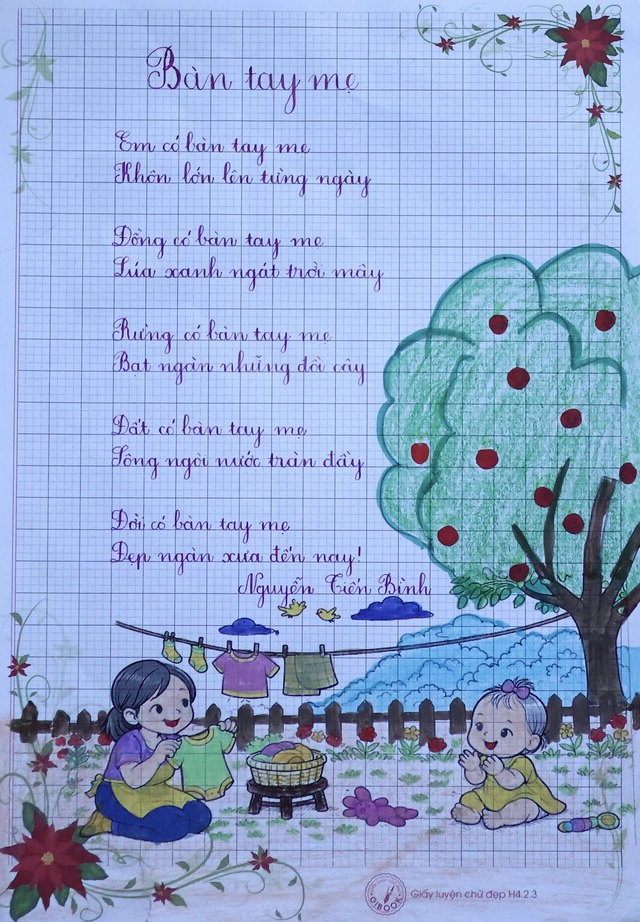 Bàn tay mẹ
Em có bàn tay mẹ
Khôn lớn lên từng ngày
Đồng có bàn tay mẹ
Lúa xanh ngát trời mây
Rừng có bàn tay mẹ
Bạt ngàn những đồi cây
Đất có bàn tay mẹ
Sông ngòi nước tràn đầy
Đời có bàn tay mẹ
Đẹp ngàn xưa đến nay!
Nguyễn Tiến Bình
OIBOOK
Giấy luyện chữ đẹp H4.2.3